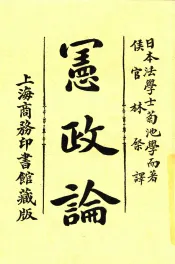 日本法學士菊池學而著
侯官林棨譯
憲政論
上海商務印書館藏版